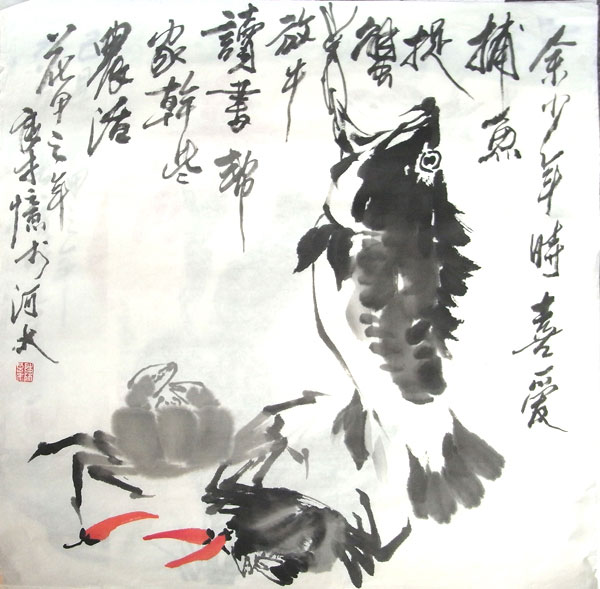 余少年時喜愛
捕魚
捉
蟹
放牛
讀書幫
家幹些
農活
花甲之年
才憶於河大